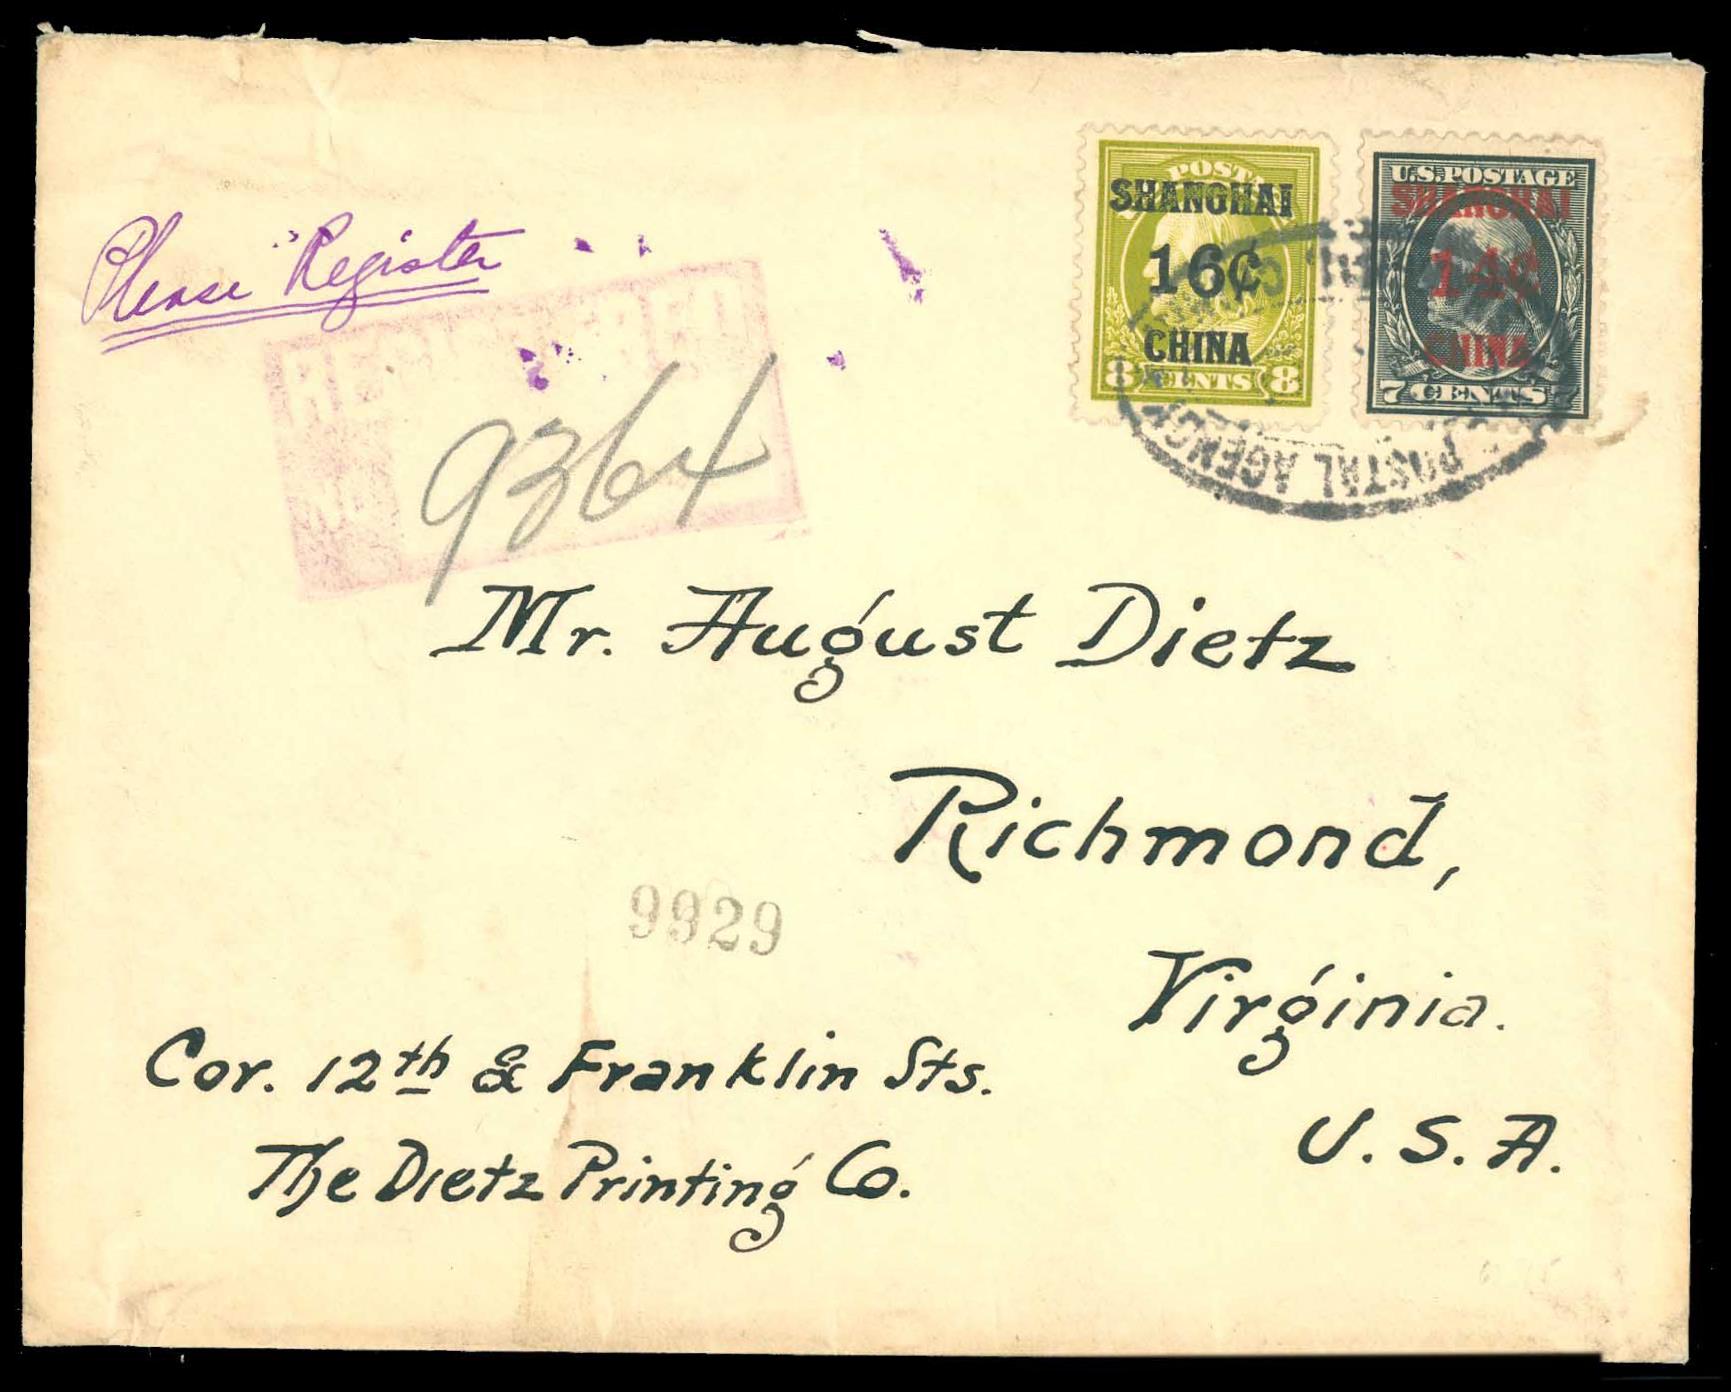 Please Register
REGISTERED
No
9364
POSTA
SHANGHAI
16¢
CHINA
8 CENTS 8
U.S. POSTAGE
SHANGHAI
14¢
CHINA
7 CENTS
POSTAL AGENCY
Mr. August Dietz
Richmond,
9929
Virginia.
Cor. 12th & Franklin Sts.
U. S. A.
The Dietz Printing Co.